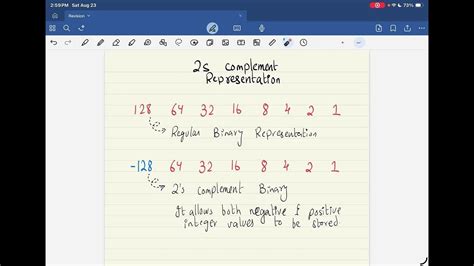 2:59PM Sat Aug 23
73%
Revision
2s Complement
Representation
128 64 32 16 8 4 2 1
Regular Binary Representation
-128 64 32 16 8 4 2 1
2's complement Binary
It allows both negative & positive
integer values to be stored